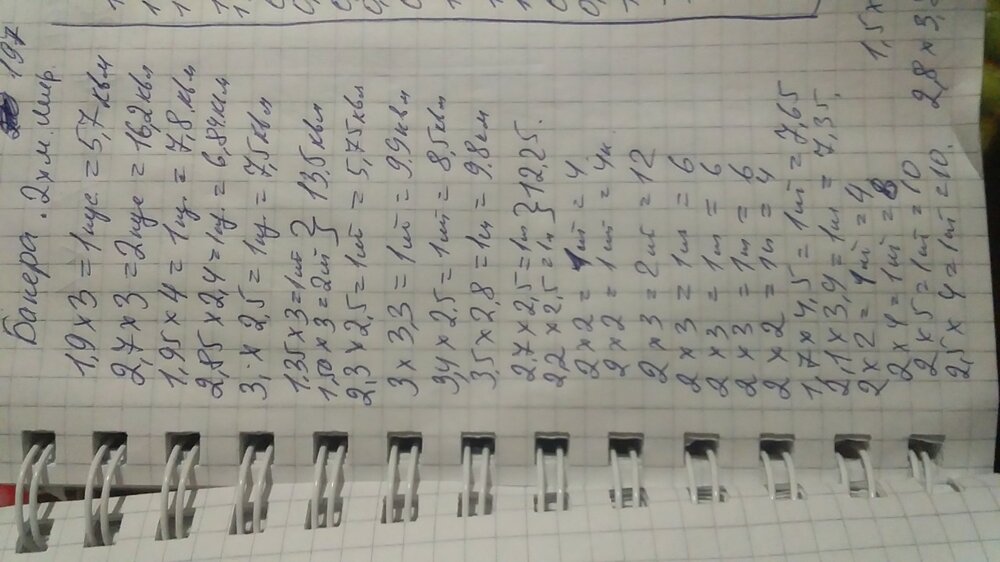 197
Банера. 2х м. шир.
1,9 х 3 = 1шус = 5,7 квм
2,7 х 3 = 2шус = 16,2 квм
1,95 х 4 = 1шу. = 7,8 квм
2,85 х 2,4 = 1шу. = 6,84квм.
3, х 2,5 = 1шу = 7,5 квм
1,35 х 3 = 1шт } 13,5 квм.
1,50 х 3 = 2шт
2,3 х 2,5 = 1шт = 5,75 квм
3 х 3,3 = 1шт = 9,9 квм
3,4 х 2,5 = 1шт = 8,5 квм
3,5 х 2,8 = 1ш = 9.8 км
2,7 х 2,5 = 1ш } 12,25.
2,2 х 2,5 = 1ш
2 х 2 = 1шт = 4
2 х 2 = 1шт = 4м.
2 х 3 = 2шт = 12
2 х 3 = 1ш = 6
2 х 3 = 1ш = 6
2 х 3 = 1ш = 6
2 х 2 = 1ш = 4
1,7 х 4,5 = 1шт = 7,65
2,1 х 3,4 = 1ш = 7,35.
2 х 2 = 1шт = 4
2 х 4 = 1шт = 8
2 х 5 = 1шт = 10
2,5 х 4 = 1шт = 10.
1,5х
2,8 х 3,